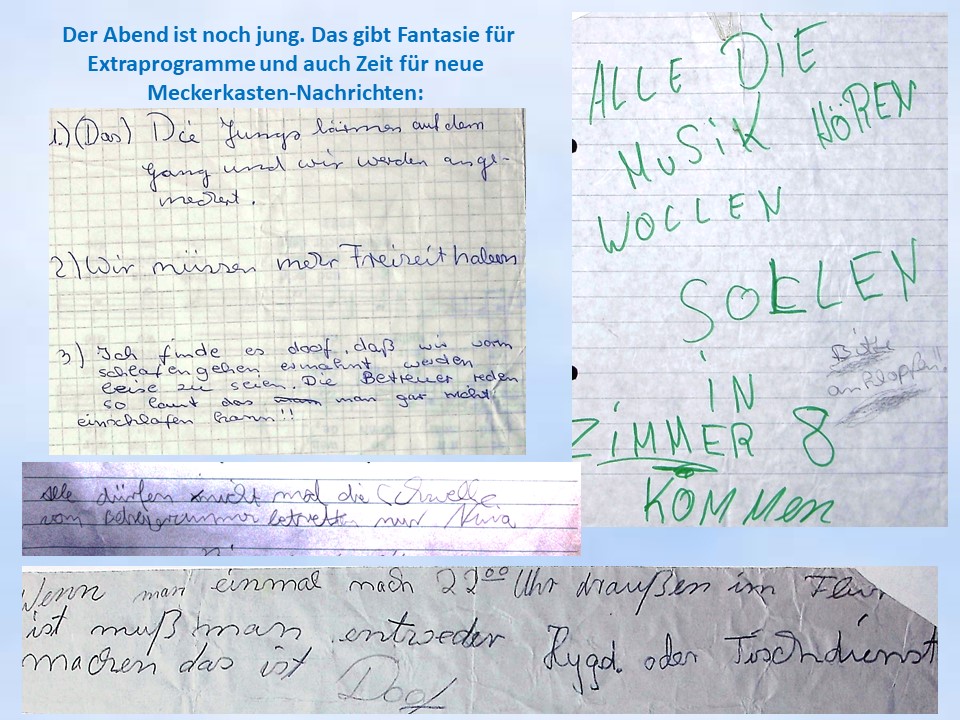 Der Abend ist noch jung. Das gibt Fantasie für
Extraprogramme und auch Zeit für neue
Meckerkasten-Nachrichten:
1.) (Das) Die Jungs lärmen auf dem
Gang und wir werden ange-
meckert.
2) Wir müssen mehr Freizeit haben
3) Ich finde es doof, daß wir vorm
schlafen gehen ermahnt werden
leise zu seien. Die Betreuer reden
so laut das man gar nicht
einschlafen kann!!
ALLE DIE
MUSIK HÖREN
WOLLEN
SOLLEN
IN
ZIMMER 8
KOMMEN
Bitte
anklopfen!!
dürfen nicht mal die Schwelle
vom betretten nur
Wenn man einmal nach 22⁰⁰ Uhr draußen im Flur
ist muß man entweder Hygd. oder Tischdienst
machen das ist Doof